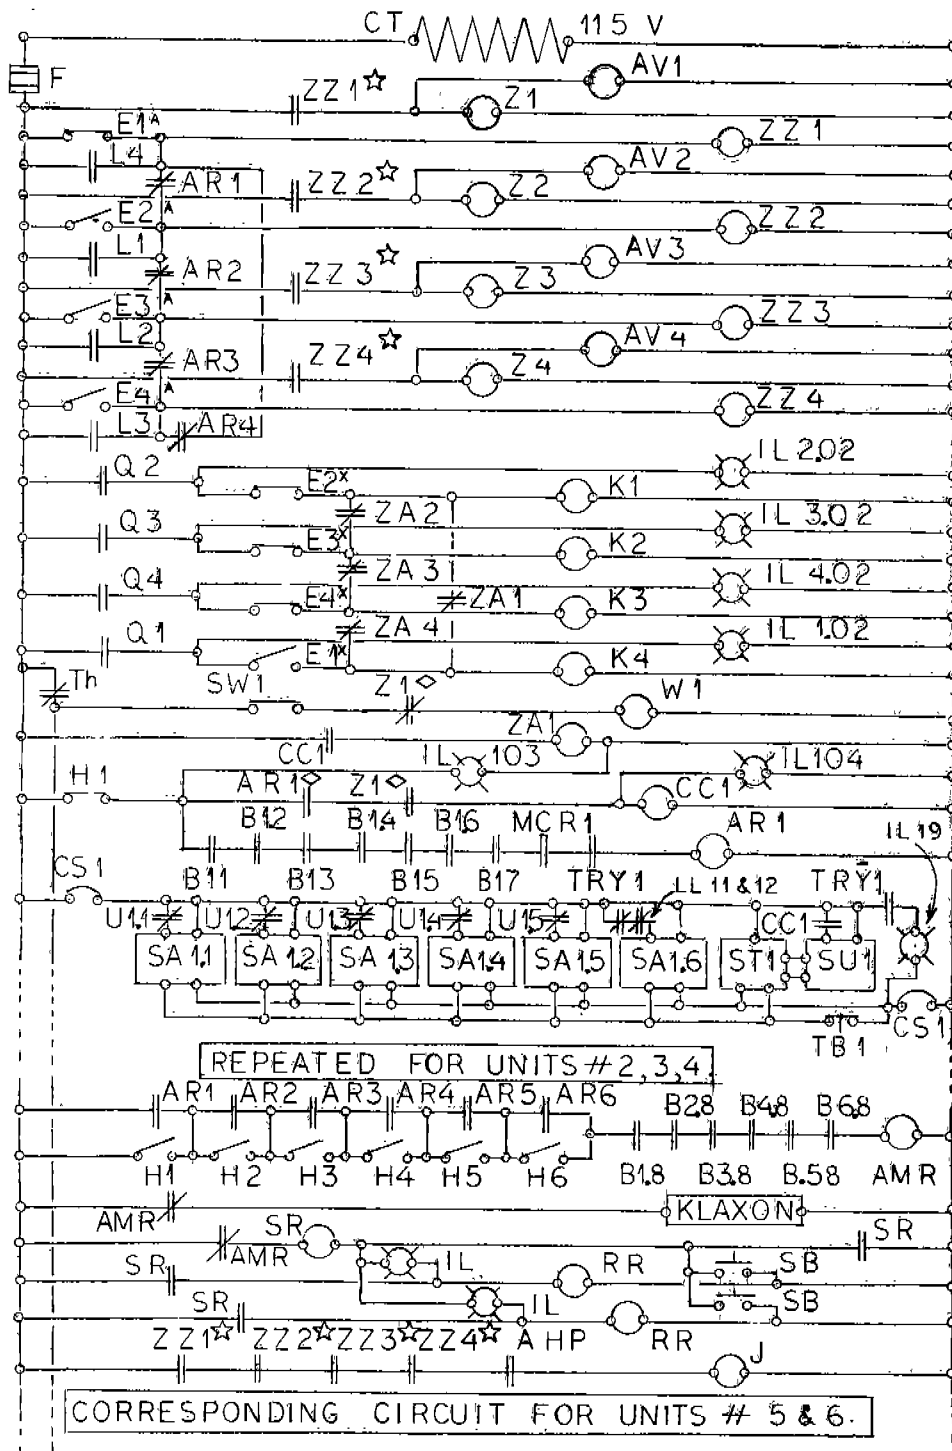 CT 115 V
F
AV1
ZZ1☆ Z1
E1A ZZ1
L4 AV2
AR1 ZZ2☆ Z2
E2A ZZ2
L1 AV3
AR2 ZZ3☆ Z3
E3A ZZ3
L2 AV4
AR3 ZZ4☆ Z4
E4A ZZ4
L3 AR4
Q2 IL 2.02
E2X K1
Q3 ZA2 IL 3.02
E3X K2
Q4 ZA3 IL 4.02
E4X ZA1 K3
Q1 ZA4 IL 1.02
E1X K4
Th SW1 Z1◇ W1
ZA1
CC1 IL 103 IL104
H1 AR1◇ Z1◇ CC1
B12 B14 B16 MCR1 AR1 IL 19
CS1 B11 B13 B15 B17 TRY1 LL 11 & 12 TRY1
U1.1 U12 U1.3 U1.4 U1.5 CC1
SA 1.1 SA 1.2 SA 1.3 SA1.4 SA 1.5 SA1.6 ST1 SU1
TB1 CS1
REPEATED FOR UNITS # 2,3,4.
AR1 AR2 AR3 AR4 AR5 AR6
B2.8 B4.8 B6.8
H1 H2 H3 H4 H5 H6 B1.8 B3.8 B.58 AMR
AMR KLAXON
SR SR
AMR IL RR SB
SR
IL SB
SR AHP RR
ZZ1☆ ZZ2☆ ZZ3☆ ZZ4☆ J
CORRESPONDING CIRCUIT FOR UNITS # 5 & 6.